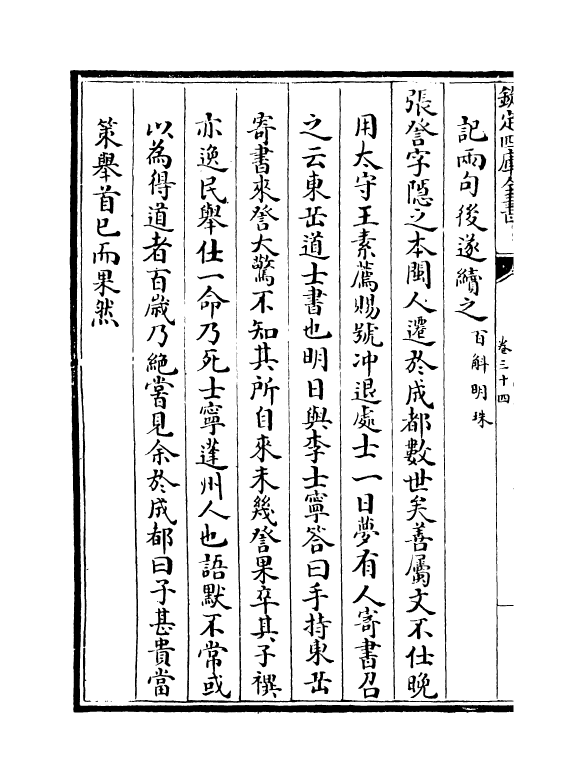 欽定四庫全書
卷三十四
記兩句後遂續之百斛明珠
張詧字隱之本閩人遷於成都數世矣善屬文不仕晚
用太守王素薦賜號冲退處士一日夢有人寄書召
之云東岳道士書也明日與李士寧答曰手持東岳
寄書來詧大驚不知其所自來未幾詧果卒其子禩
亦逸民舉仕一命乃死士寧蓬州人也語默不常或
以為得道者百歲乃絶嘗見余於成都曰子甚貴當
策舉首已而果然